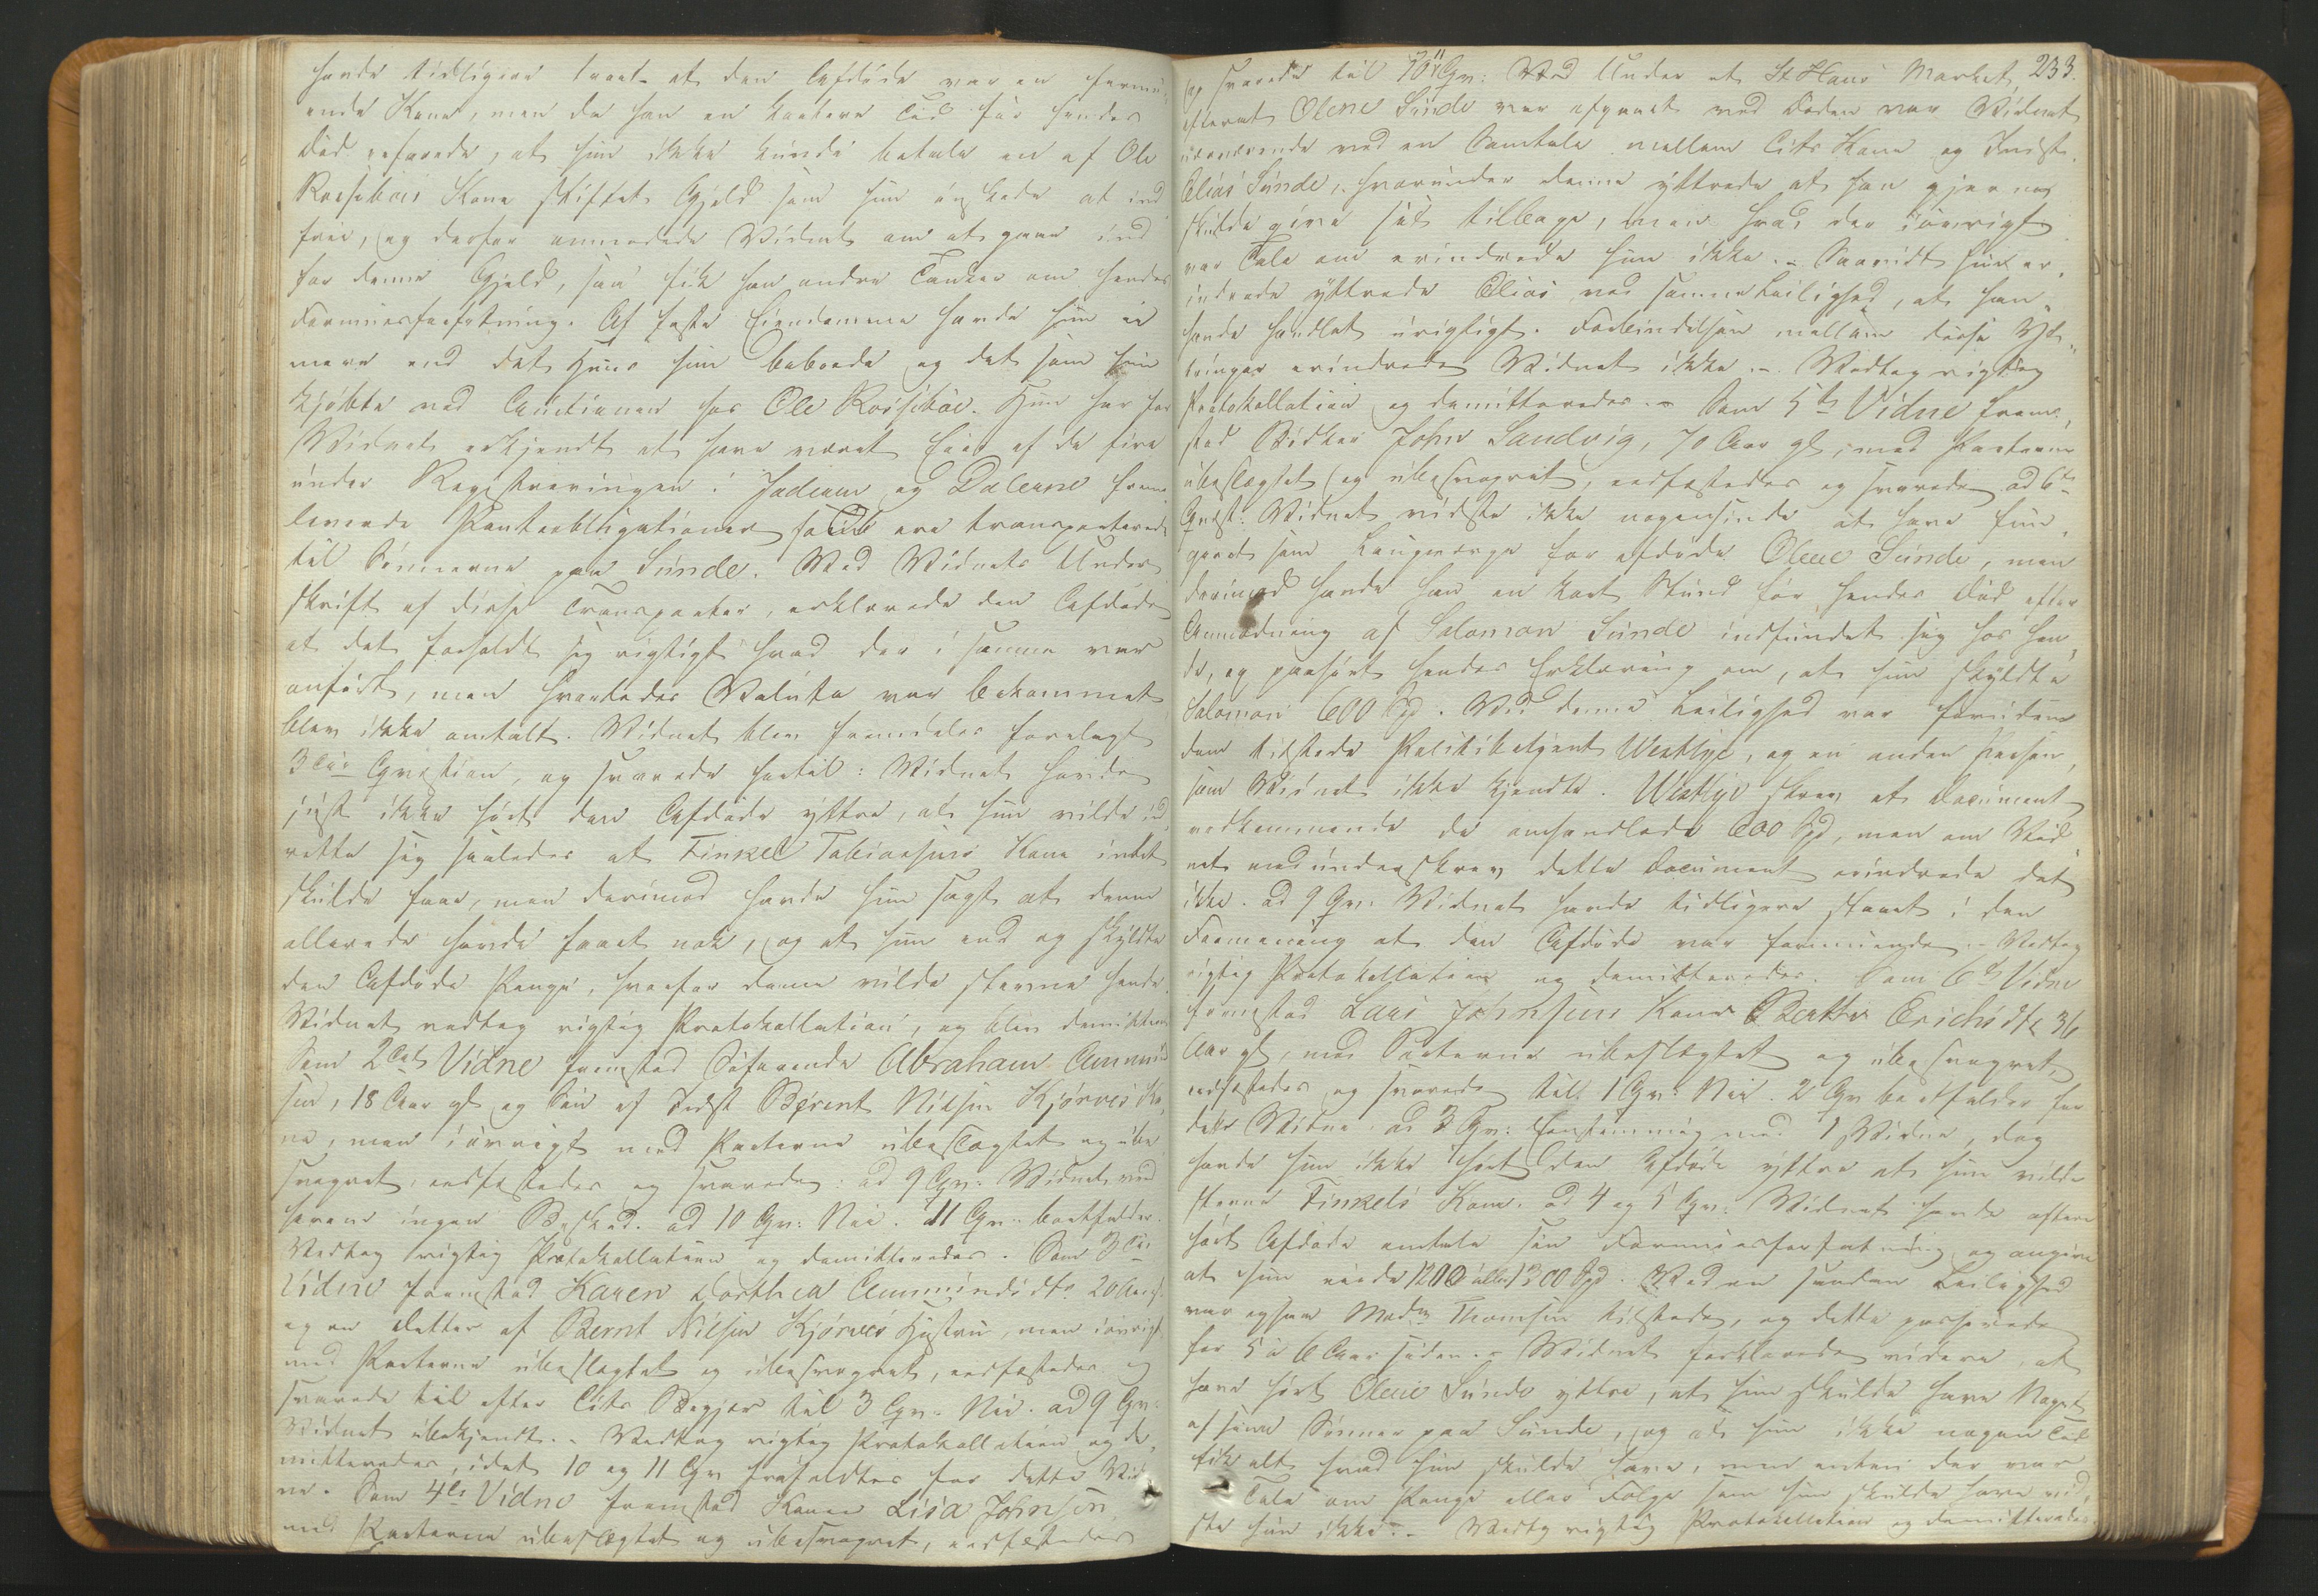 havde tidligere troet at den Afdøde var en formu-
ende Kone, men da han en kortere Tid før hendes
Død erfarede, at hun ikke kunde betale en af Ole
Rossebøes Kone stiftet Gjeld som hun ønskede at ind
frie, og derfor anmodede Vidnet om at gaae ind
for denne Gjeld, saa fik han andre Tanker om hendes
Formuesforfatning. Af faste Eiendomme havde hun ei
mere end det Huus hun beboede og det som hun
kjøbte ved Auctionen hos Ole Rossebøe. Hun har for
Vidnet erkjendt at have været Eier af de fire
under Registreringen i Jæderen og Dalerne frem
levende Panteobligationer som ere transporterede
til Sønnerne paa Sunde. Ved Vidnets Under
skrift af disse Transporter, erklærede den Afdøde
at det forholdt sig rigtigt hvad der i samme var
anført, men hvorledes Valuta var bekommet
blev ikke omtalt. Vidnet blev fremdeles forelagt
3die Qvæstion, og svarede hertil: Vidnet havde
just ikke hørt den Afdøde yttre, at hun vilde ind
rette sig saaledes at Tinkel Tobiassens Kone intet
skulde faae, men derimod havde hun sagt at denne
allerede havde faaet nok, og at hun end og skyldte
den Afdøde Penge, hvorfor denne vilde stevne hende.
Vidnet vedtog rigtig Protokollation, og blev demitteret
Som 2det Vidne fremstod Søfarende Abraham Ammund
sen, 18 Aar gl og Søn af Indst Berent Nilsen Kjørvei Ko
ne, men iøvrigt med Parterne ubeslægtet og ube
svogret, eedfæstedes og svarede: ad 9 Qv: Vidnet ved
herom ingen Besked. ad 10 Qv: Nei. 11 Qv: bortfalder.
Vedtog rigtig Protokollation og demitteredes. Som 3die
Vidne fremstod Karen Dorthea Ammundsdtr 20 Aar gl
og en Datter af Bernt Nilsen Kjørveis Hustru, men iøvrigt
med Parterne ubeslægtet og ubesvogret, eedfæstedes og
svarede til efter Cits Begjær til 3 Qv: Nei. ad 9 Qv:
Vidnet ubekjendt. – Vedtog rigtig Protokollation og de
mitteredes, idet 10 og 11 Qv frafaldtes for dette Vid
ne. Som 4de Vidne fremstod Konen Lisa Johnsen
med Parterne ubeslægtet og ubesvogret, eedfæstedes
233.
og svarede til 10 Qv: Ved Under et St Hans Marked,
efterat Olene Sunde var afgaaet ved Døden var Vidnet
nærværende ved en Samtale mellem Cits Kone og Indst.
Elias Sunde, hvorunder denne yttrede at han gjerne
skulde give sit tilbage, men hvad der iøvrigt
var Tale om erindrede hun ikke. – Saavidt hun er
indrede yttrede Elias ved samme Leilighed, at han
havde handlet urigtigt. Forbindelsen mellem disse Yt
tringer erindrede Vidnet ikke. – Vedtog rigtig
Protokollation og demitteredes. – Som 5te Vidne frem
stod Bødker John Sandvig, 70 Aar gl, med Parterne
ubeslægtet og ubesvogret, eedfæstedes og svarede ad 6te
Qvæst: Vidnet vidste ikke nogensinde at have fun
geret som Laugværge for afdøde Olene Sunde, men
derimod havde han en kort Stund før hendes Død efter
Anmodning af Salomon Sunde indfundet sig hos hen
de, og paahørt hendes Erklæring om, at hun skyldte
Salomon 600 Spd. Ved denne Leilighed var foruden
dem tilstede Politibetjent Westlye, og en anden Person,
som Vidnet ikke kjendte. Westlye skrev et Document
vedkommende de omhandlede 600 Spd, men om Vid
net medunderskrev dette Document erindrede det
ikke. ad 9 Qv: Vidnet havde tidligere staaet i den
Formening at den Afdøde var formuende. – Vedtog
rigtig Protokollation og demitteredes. Som 6te Vidne
fremstod Lars Johnsens Kone Berthe Erichsdtr 36
Aar gl, med Parterne ubeslægtet og ubesvogret,
eedfæstedes og svarede till 1 Qv: Nei. 2 Qv bortfalder for
dette Vidne. ad 3 Qv: Eenstemmig med 1 Vidne, dog
havde hun ikke hørt den Afdøde yttre at hun vilde
stevne Tinkels Kone. ad 4 og 5 Qv: Vidnet havde oftere
hørt Afdøde omtale sin Formuesforfatning og angive
at hun eiede 1200 eller 1300 Spd. Ved en saadan Leilighed
var ogsaa Mdm Thomsen tilstede, og dette passerede
for 5 à 6 Aar siden. – Vidnet forklarede videre, at
have hørt Olene Sunde yttre, at hun skulde have Noget
af sine Sønner paa Sunde, og at hun ikke nogen Tid
fik alt hvad hun skulde have, men enten der var
Tale om Penge eller Følge som hun skulde have vid
ste hun ikke. – Vedtog rigtig Protokollation og demitteredes.